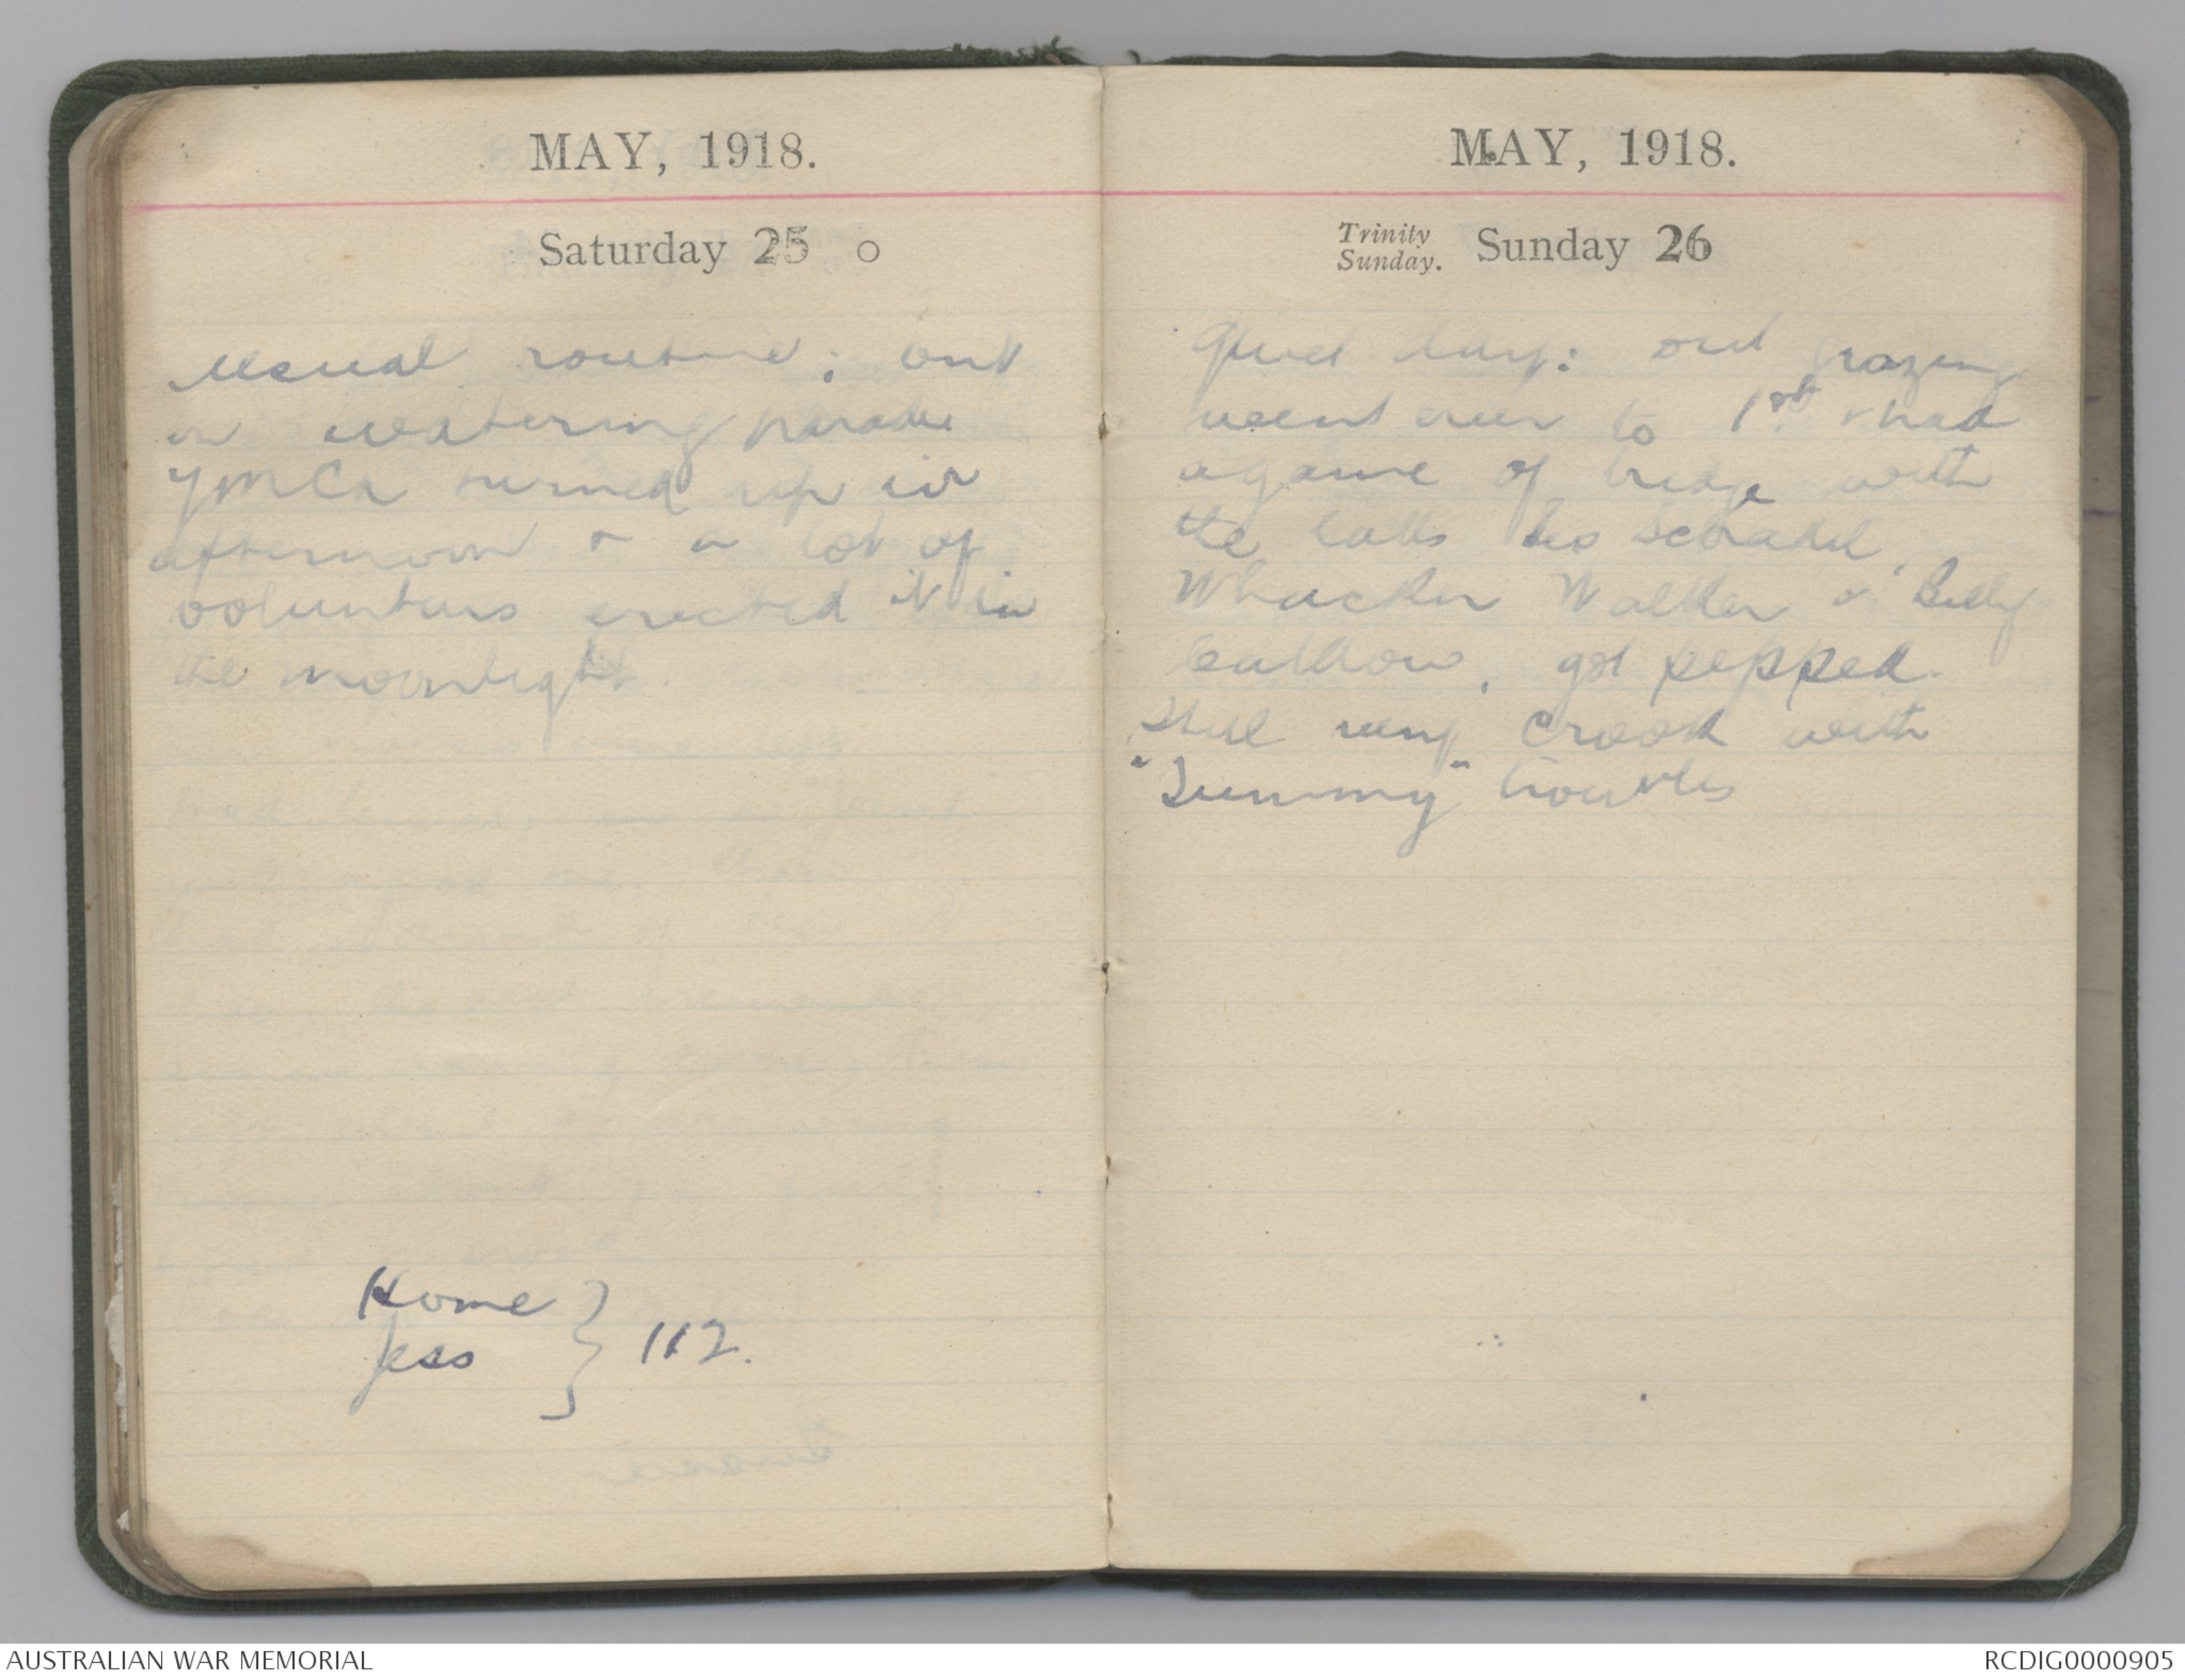 MAY, 1918.
Saturday 25 o
Usual routine; out
on watering parade
YMCA turned up in
afternoon & a lot of
volunteers erected it in
the moonlight.
Home
Jess } 112.
MAY, 1918.
Trinity Sunday. Sunday 26
Quiet day: out grazing
went over to 1st & had
a game of bridge with
the lads Les
Whacker Walker & Billy
got pepped.
Still very crook with
"Tummy" troubles
AUSTRALIAN WAR MEMORIAL
RCDIG0000905